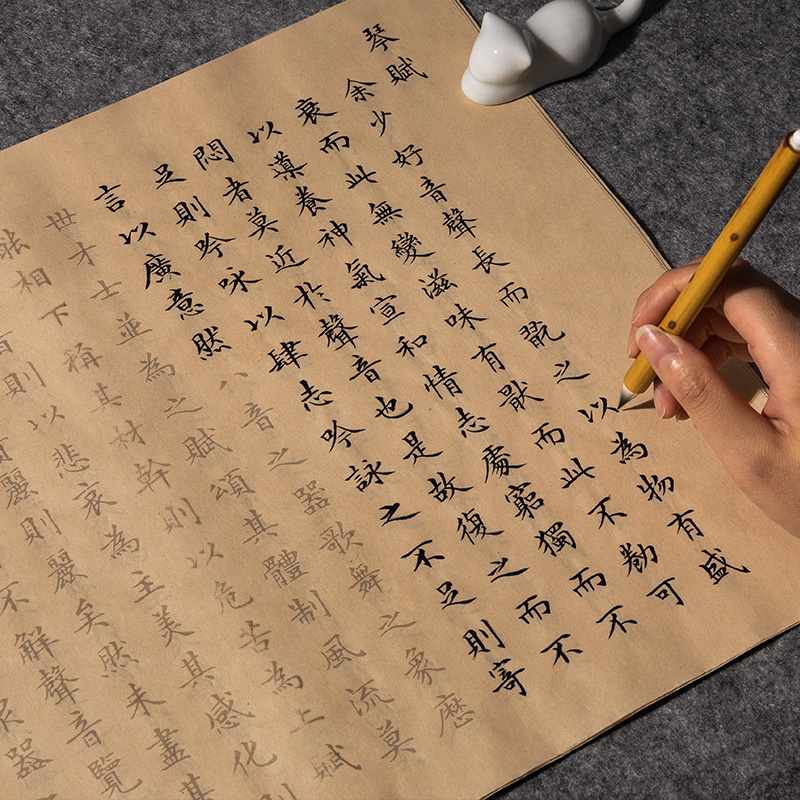 琴賦
余少好音聲長而翫之以為物有盛
衰而此無變滋味有猒而此不勌可
以導養神氣宣和情志處窮獨而不
悶者莫近於聲音也是故復之而不
足則吟咏以肆志吟詠之不足則寄
言以廣意然八音之器歌舞之象歷
世才士並為之賦頌其體制風流莫
相下稱其材幹則以危苦為上賦
則以悲哀為主美其感化則
麗則麗矣然未盡其
不解聲音覽
器